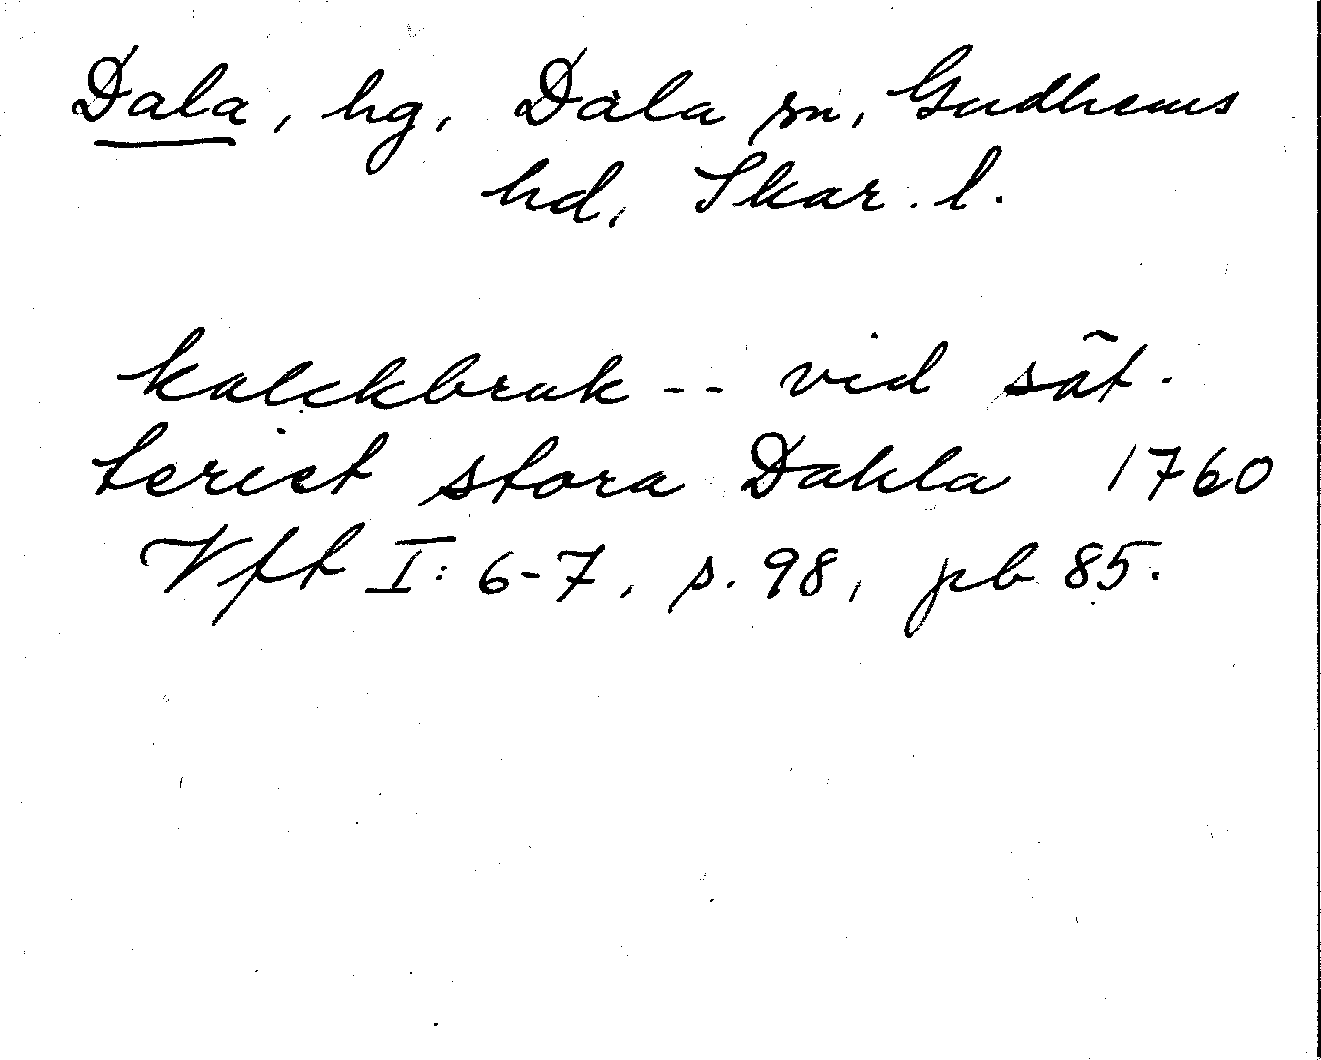 Dala, hg, Dala sn, Gudhems
hd, Skar. l.
kalckbruk -- vid sät-
teriet stora Dahla 1760
Vft I: 6-7, s. 98, pb 85.